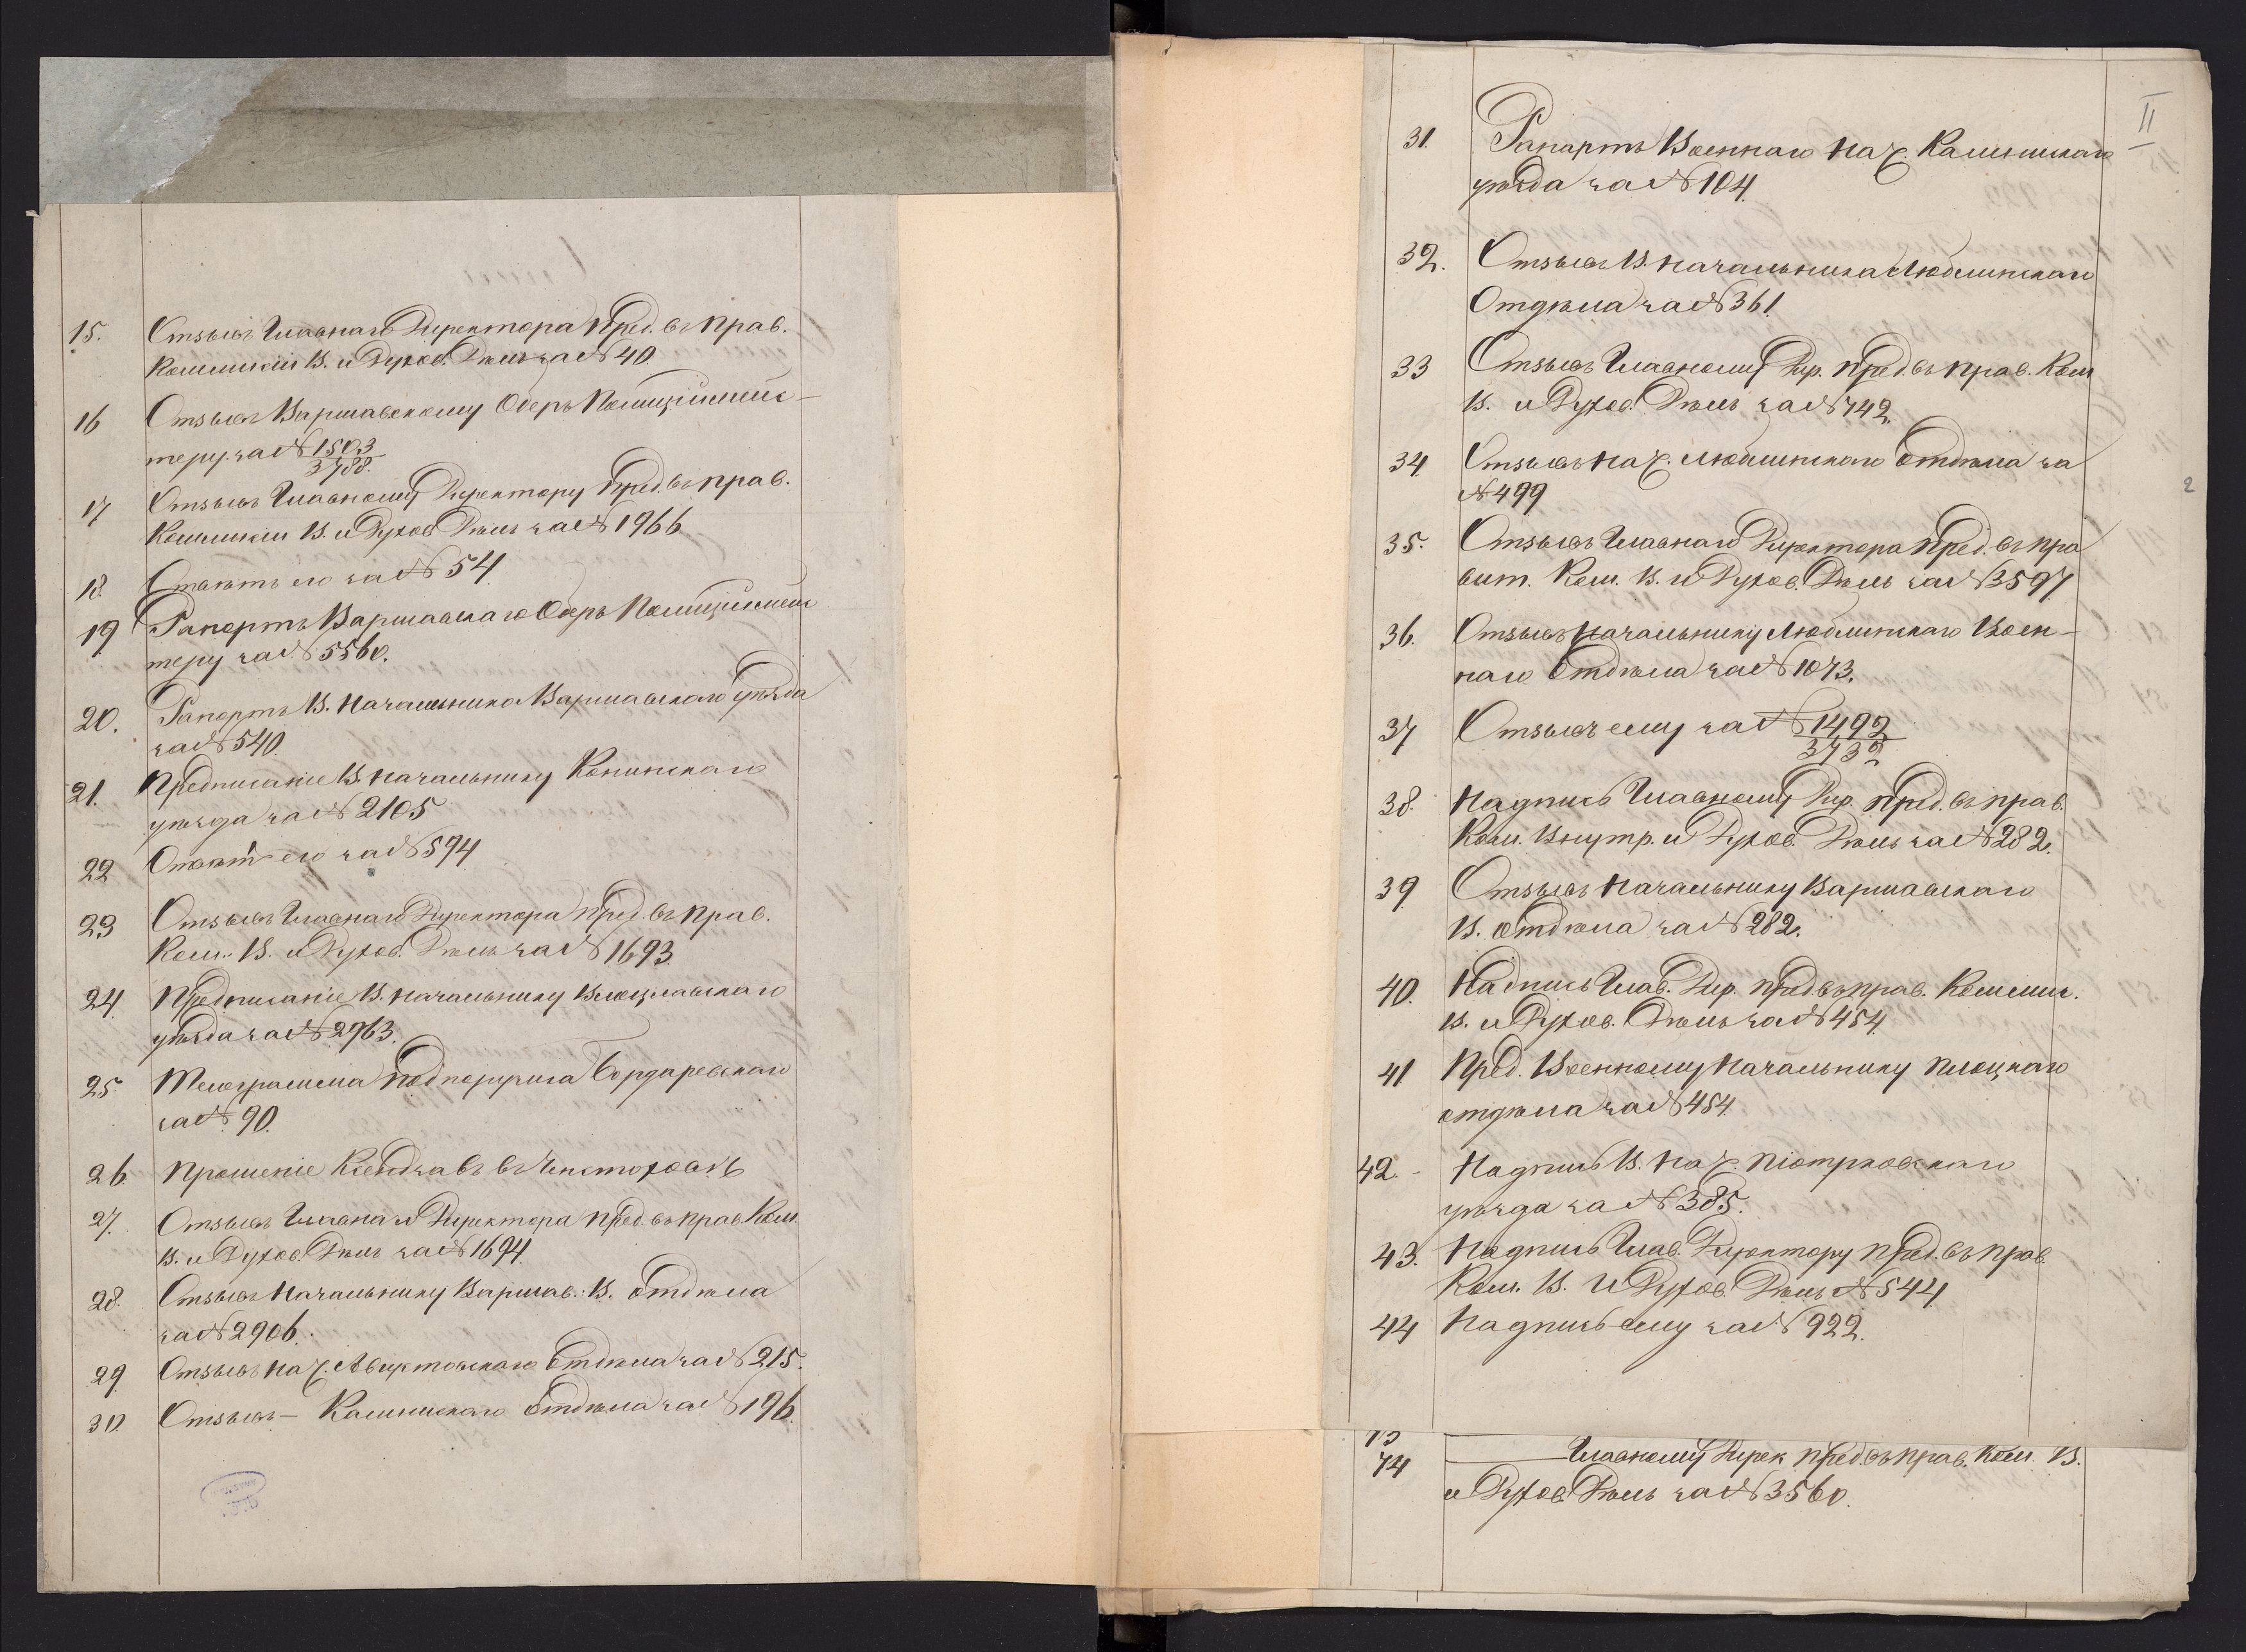 15. Отзывъ Главнаго Директора Пред. въ Прав.
Коммисіи В. и Духов. Дѣлъ за № 40.
16 Отзывъ Варшавскому Оберъ Полицiймейс-
теру. за № 1503
3788.
17 Отзывъ Главному Директору Пред. въ Прав.
Коммисіи В. и Духов Дѣлъ за № 1966
18. Отвѣтъ его за № 54
19 Рапортъ Варшавскаго Оберъ Полиціймейс
теру за № 5560.
20. Рапортъ В. Начальника Варшавскаго уѣзда
за № 540.
21. Предписаніе В. Начальнику Конинскаго
уѣзда за № 2105
22 Отвѣтъ его за № 594
23 Отзывъ Главнаго Директора Пред. въ Прав.
Ком. В. и Духов. Дѣлъ за № 1693.
24. Предписаніе В. Начальнику Влоцлавскаго
уѣзда за № 2763.
25. Телеграмма Подпоручика
за № 90.
26. Прошеніе Ксендзавъ въ Ченстоховѣ
27. Отзывъ Главнаго Директора Пред. въ Прав. Ком
В. и Духов. Дѣлъ за № 1694.
28. Отзывъ Начальнику Варшав. В. Отдѣла
за № 2906.
29 Отзывъ Нач. Августовскаго Отдѣла за № 215.
30 Отзывъ — Калишскаго Отдѣла за № 196.
II
31. Рапортъ Военнаго Нач. Калишскаго
уѣзда за № 104.
32. Отзывъ В. Начальника Люблинскаго
Отдѣла за № 361
33 Отзывъ Главному Дир. Пред. въ Прав. Ком
В. и Духов. Дѣлъ за № 742.
34 Отзывъ Нач. Люблинскаго Отдѣла за
№ 499
2
35. Отзывъ Главнаго Директора Пред. въ Пра
вит. Ком. В. и Духов. Дѣлъ за № 3597
36. Отзывъ Начальнику Люблинскаго Воен-
наго Отдѣла за № 1073.
37 Отзывъ ему за № 1492
3732
38. Надпись Главному Дир. Пред. въ Прав.
Ком. Внутр. и Духов. Дѣлъ за № 282.
39 Отзывъ Начальнику Варшавскаго
В. отдѣла за № 282.
40. Надпись Глав. Дир. Пред. въ Прав. Коммис.
В. и Духов. Дѣлъ за № 454
41 Пред. Военному Начальнику Плоцкаго
отдѣла за № 454
42. - Надпись В. Нач. Піотрковскаго
уѣзда за № 385.
43. Надпись Глав. Директору Пред. въ Прав.
Ком. В. и Духов. Дѣлъ № 544
44 Надпись ему за № 922.
73
74 Главному Дирек Пред. въ Прав. Ком. В.
и Духов. Дѣлъ за № 3560.